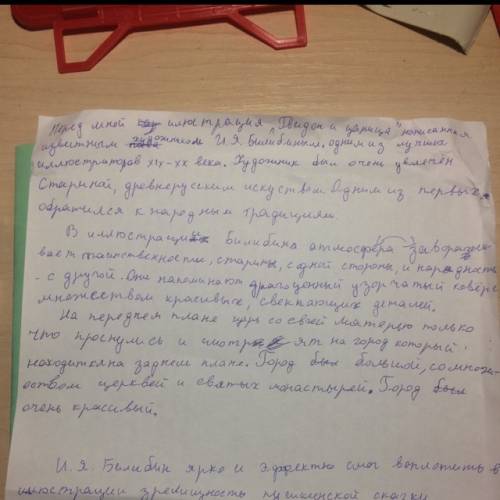 Перед мной илюстрация "Гвидон и царица" нописанная
известним художником И.Я. Билибиным, одним из лучших
иллюстраторов XIX-XX века. Художник был очень увлечён
Стариной, древнеруским искуством Одним из первых
обратился к народным традициям.
В иллюстрациях Билибина атмосфера завораж
вает таинственности, старины, с одной стороны, и народность
- с другой. Они напоминают драгоценный узорчатый ковёр с
множеством красивых, свекпающих деталей.
На переднем плане царь со своей матерью только
что проснулись и смотрят на город который
находится на заднем плане. Город был большой, со множе-
ством церквей и святых монастырей. Город был
очень красивый.
И.Я. Билибин ярко и эффектно смог воплотить в
илюстрации зрелищность пушкинской сказки